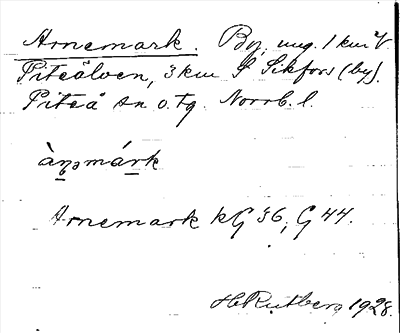 Arnemark. By, ung. 1 km V
Piteälven, 3 km S Sikfors (by).
Piteå sn o. tg. Norrb. l.
àn̥əmárk
Arnemark kG 36, G 44.
H Rutberg 1928.